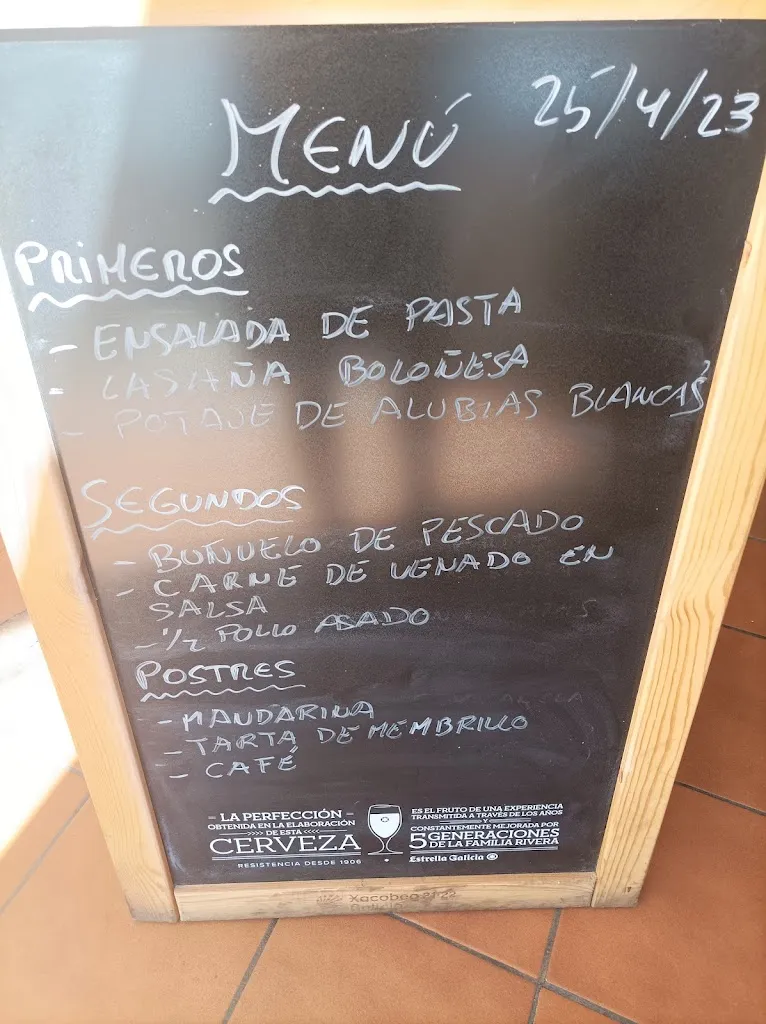 MENÚ
25/4/23
PRIMEROS
- ENSALADA DE PASTA
- LASAÑA BOLOÑESA
- POTAJE DE ALUBIAS BLANCAS
SEGUNDOS
- BUÑUELO DE PESCADO
- CARNE DE VENADO EN
SALSA
- 1/2 POLLO ASADO
POSTRES
- MANDARINA
- TARTA DE MEMBRILLO
- CAFÉ
LA PERFECCIÓN
OBTENIDA EN LA ELABORACIÓN
>>>> DE ESTA <<<<
CERVEZA
RESISTENCIA DESDE 1906
ES EL FRUTO DE UNA EXPERIENCIA
TRANSMITIDA A TRAVÉS DE LOS AÑOS
Y
CONSTANTEMENTE MEJORADA POR
5 GENERACIONES
DE LA FAMILIA RIVERA
Estrella Galicia
Xacobeo 21·22
Galicia